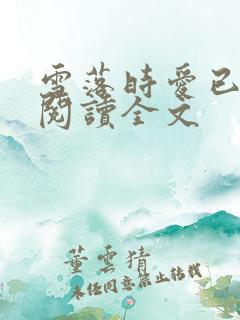 雪落時愛已
閱讀全文
董雲猜
未经同意禁止转载